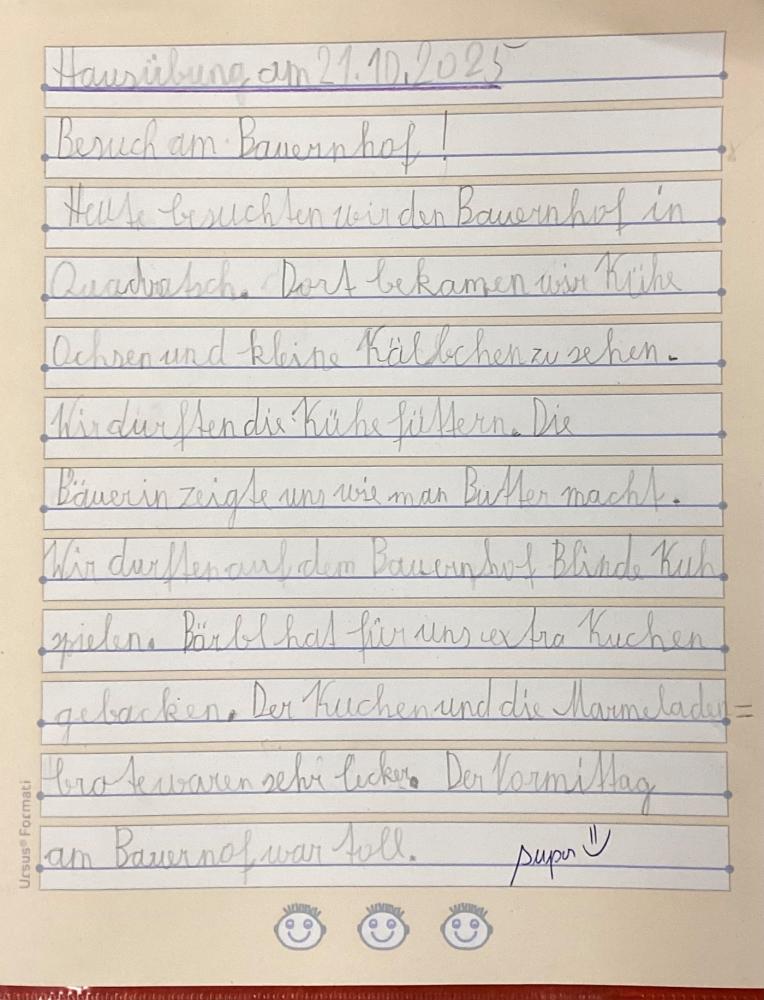 Hausübung am 21.10.2025
Besuch am Bauernhof!
Heute besuchten wir den Bauernhof in
Quadratsch. Dort bekamen wir Kühe
Ochsen und kleine Kälbchen zu sehen.
Wir durften die Kühe füttern. Die
Bäuerin zeigte uns wie man Butter macht.
Wir durften auf dem Bauernhof Blinde Kuh
spielen. Bärbl hat für uns extra Kuchen
gebacken. Der Kuchen und die Marmeladen=
brote waren sehr lecker. Der Vormittag
am Bauernof war toll. super
Ursus® Formati